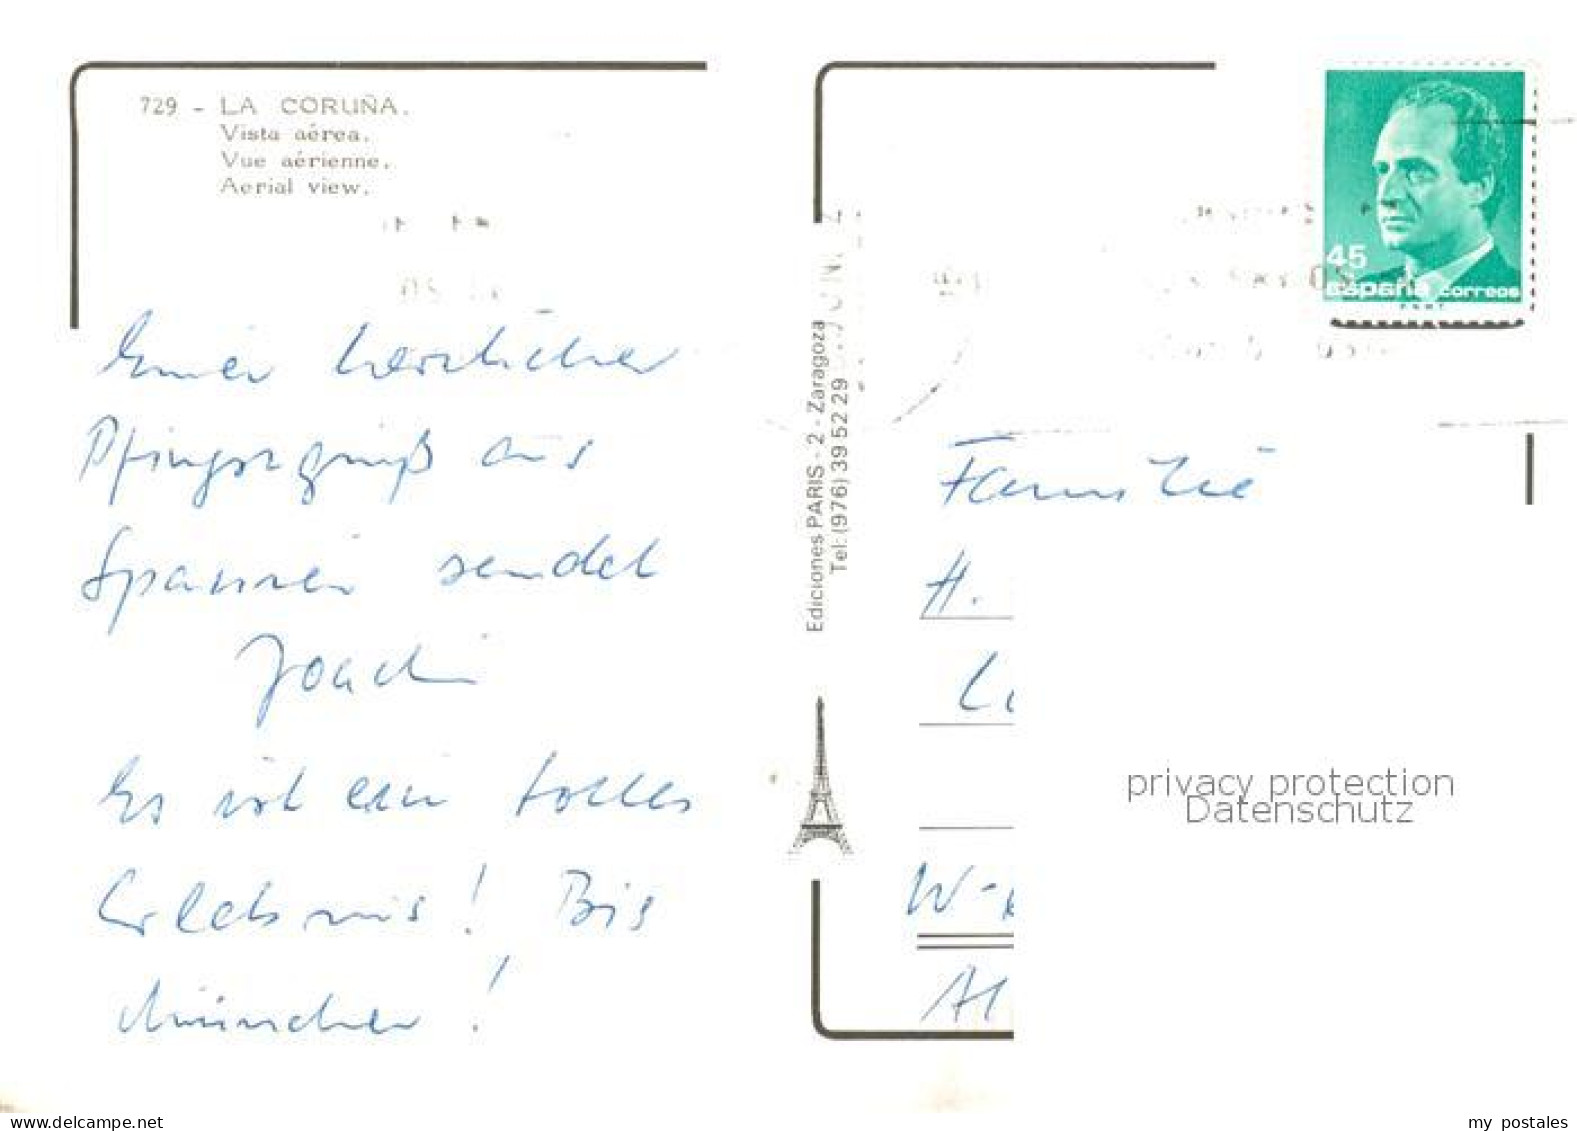 729 - LA CORUÑA.
Vista aérea.
Vue aérienne.
Aerial view.
Einen herzlichen
Pfingstgruß aus
Spanien sendet
Joachim
Es ist ein tolles
Erlebnis! Bis
München!
Ediciones PARIS - 2 - Zaragoza
Tel: (976) 39 52 29
45
españa correos
Familie
H.
W-
privacy protection
Datenschutz
www.delcampe.net
my_postales